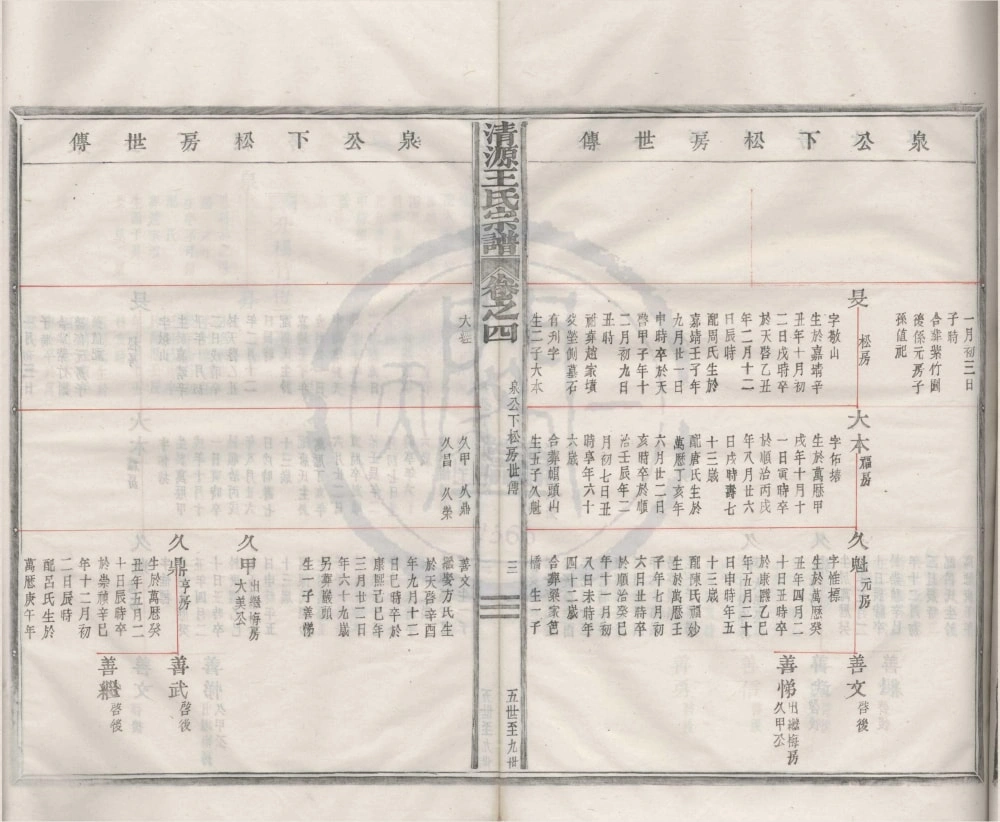 泉公下松房世傳
一月初三日
子時
合葬紫竹園
後係元房子
孫值祀
旻 松房
字敏山
生於嘉靖辛
丑年十月初
二日戌時卒
於天啓乙丑
年二月十二
日辰時
配周氏生於
嘉靖壬寅年
九月廿一日
申時卒於天
啓甲子年十
二月初九日
丑時
祔葬趙家墳
癸塋側墓石
有刊字
生二子大本
大本 福房
生於萬曆甲
戌年十月十
一日寅時卒
於順治丙戌
年八月廿六
日戌時壽七
十三歲
配唐氏生於
萬曆丁亥年
六月廿二日
亥時卒於順
治壬辰年二
月初七日丑
時享年六十
六歲
合葬帽頭山
生五子久魁
久魁 元房
字惟標
生於萬曆癸
丑年四月二
十日丑時卒
於康熙乙巳
年五月二十
日申時年五
十三歲
配陳氏順妙
生於萬曆壬
子年七月初
六日丑時卒
於順治癸巳
年十一月初
八日未時年
四十二歲
合葬藥家笆
橋 生一子
善文 啓後
善悌 出繼梅房
久甲公
清源王氏宗譜 卷之四
泉公下松房世傳
三
五世至九世
泉公下松房世傳
久甲 久鼎
久昌 久榮
善文
繼娶方氏生
於天啓辛酉
年九月十二
日巳時卒於
康熙己巳年
三月廿二日
年六十九歲
另葬猴頭
生一子善悌
久甲 出繼梅房
大美公
久鼎 亨房
生於萬曆癸
丑年五月二
十日辰時卒
於崇禎辛巳
年十二月初
二日辰時
配呂氏生於
萬曆庚午年
善武 啓後
善繼 啓後